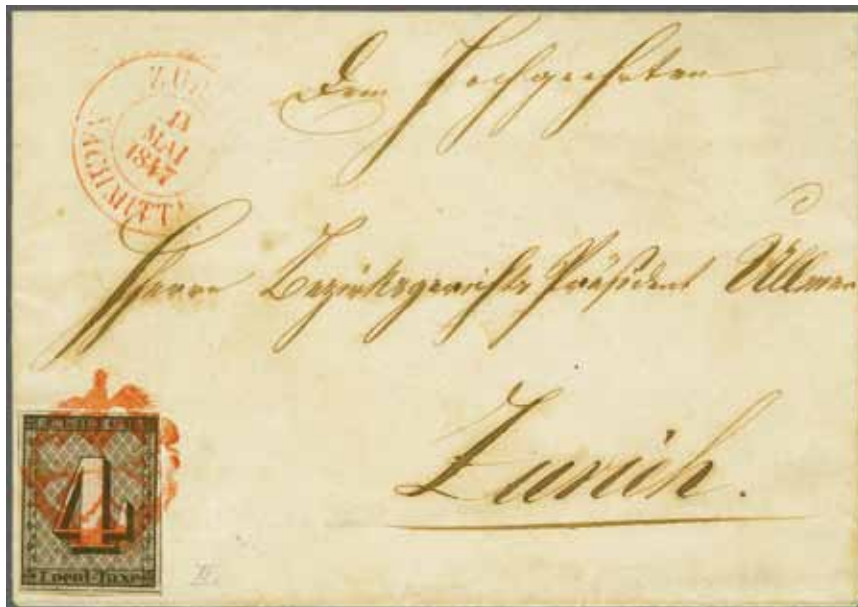 ZUR
13
MAI
1847
NACHMITTA
Dem Hochgeehrten
Herrn Bezirksgerichts Präsident Ullmer
Zürich.
4
Local-Taxe